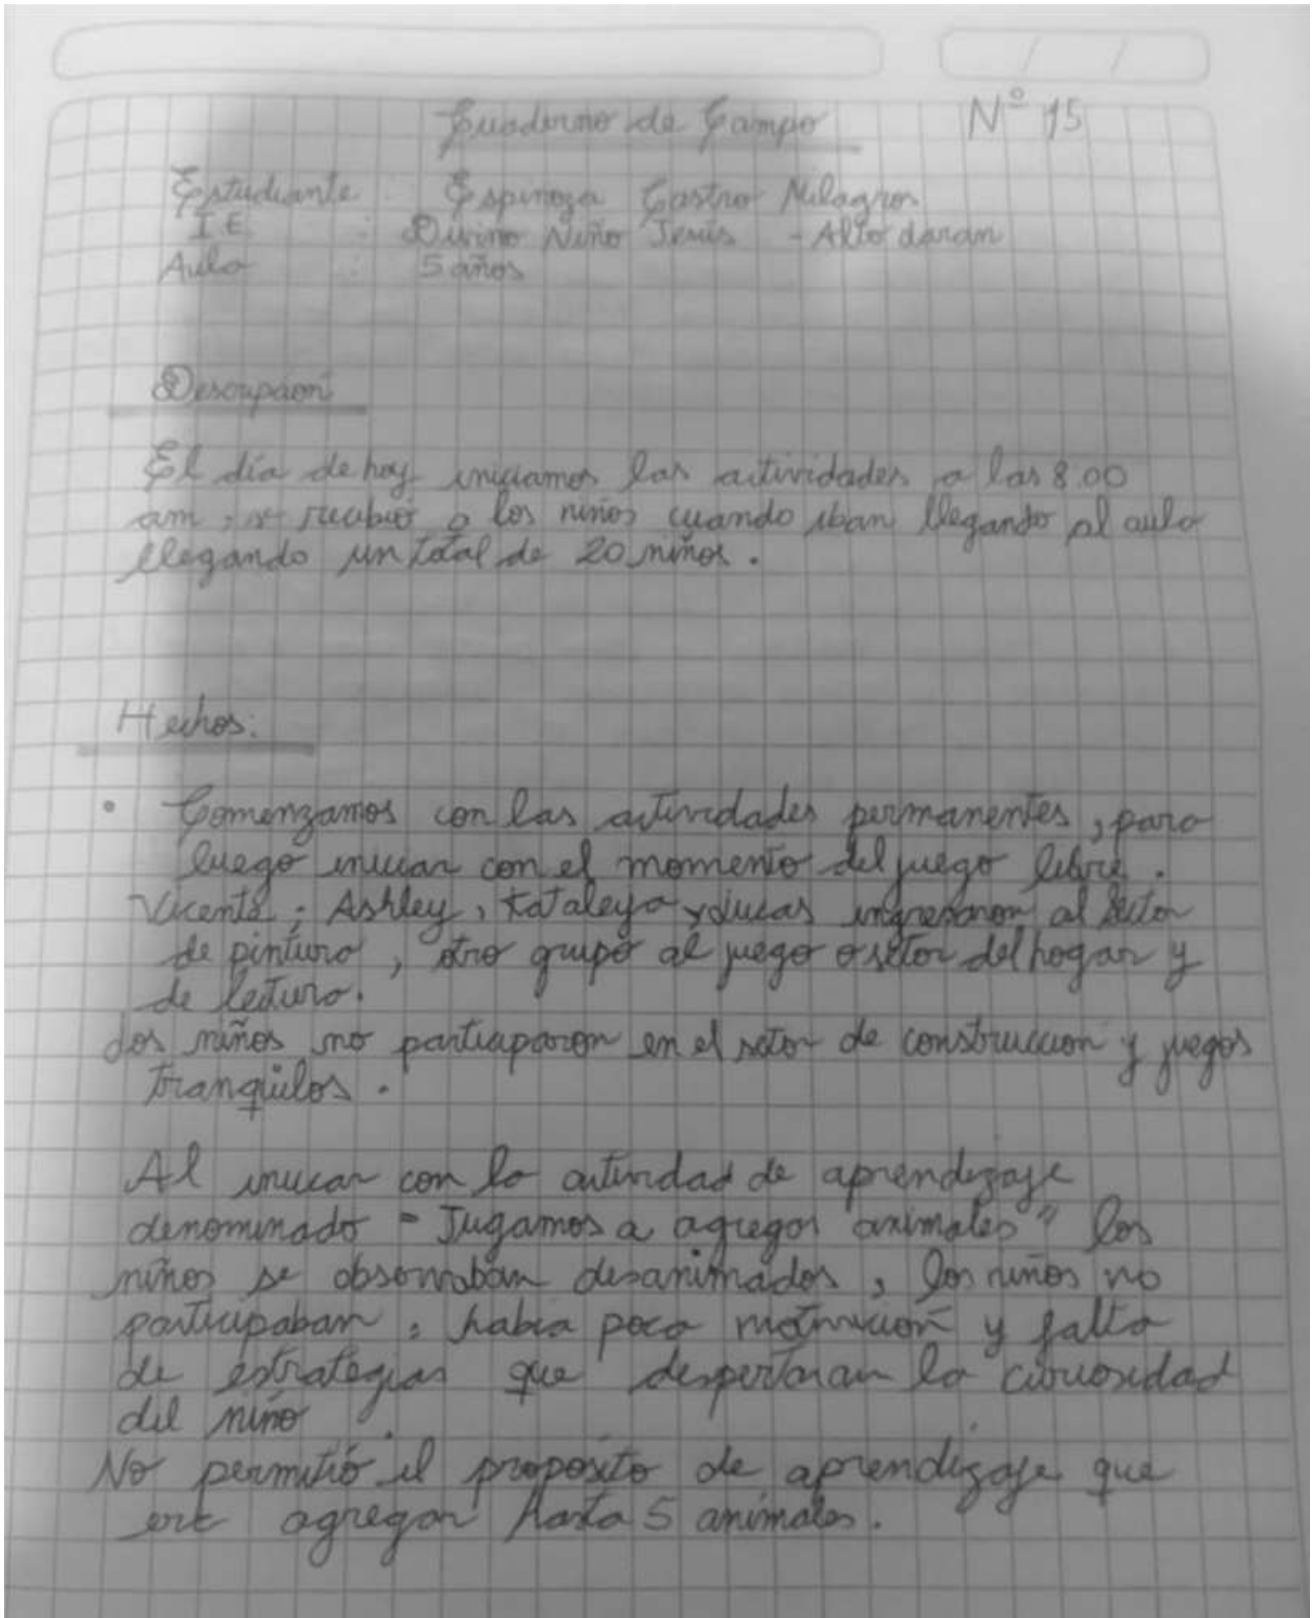 Cuaderno de Campo Nº 15
Estudiante : Espinoza Castro Milagros
I.E. : Divino Niño Jesús - Alto daran
Aula : 5 años
Descripción
El día de hoy iniciamos las actividades a las 8.00
am, se recibió a los niños cuando iban llegando al aula
llegando un total de 20 niños.
Hechos:
• Comenzamos con las actividades permanentes, para
luego iniciar con el momento del juego libre.
Vicente, Ashley, Kataleya y Lucas ingresaron al sector
de pintura, otro grupo al juego o sector del hogar y
de lectura.
dos niños no participaron en el sector de construccion y juegos
tranquilos.
Al iniciar con la actividad de aprendizaje
denominado "Jugamos a agregar animales" los
niños se observaban desanimados, los niños no
participaban, habia poca motivación y falta
de estrategias que despertaran la curiosidad
del niño.
No permitió el proposito de aprendizaje que
era agregar hasta 5 animales.